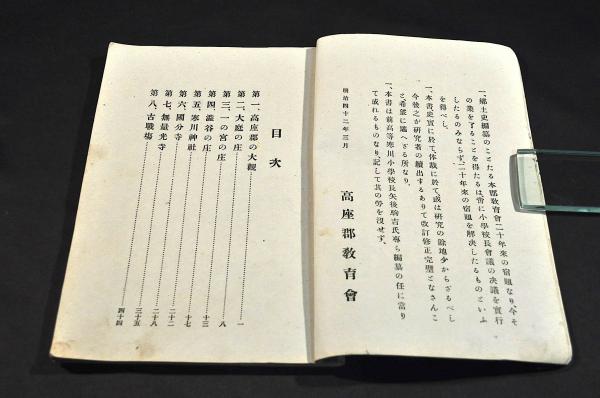 一、鄕土史編纂のことたる本郡敎育會二十年來の宿題なり、今そ
の業を了ることを得たるは啻に小學校長會議の决議を實行
したるのみならず、二十年來の宿題を解决したるものといふ
を得べし、
一、本書史實に於て、体裁に於て或は研究の餘地少からざるべし
今後之が研究者の續出するありて改訂修正完璧となさんこ
と希望に堪へざる所なり、
一、本書は前高等寒川小學校長矢後駒吉氏專ら編纂の任に當り
て成れるものなり、記して其の勞を沒せず、
明治四十二年三月
高座郡敎育會
目次
第一、高座郡の大觀 一
第二、大庭の庄 八
第三、一の宮の庄 十三
第四、澁谷の庄 十七
第五、寒川神社 二十二
第六、國分寺 二十八
第七、無量光寺 三十五
第八、古戰塲 四十四